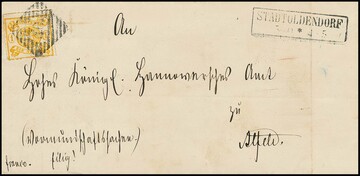 STADTOLDENDORF
An
Hohes Königl. Hannoversches Amt
zu
Alfeld.
(Vormundschaftssachen.)
franco.
Eilig!